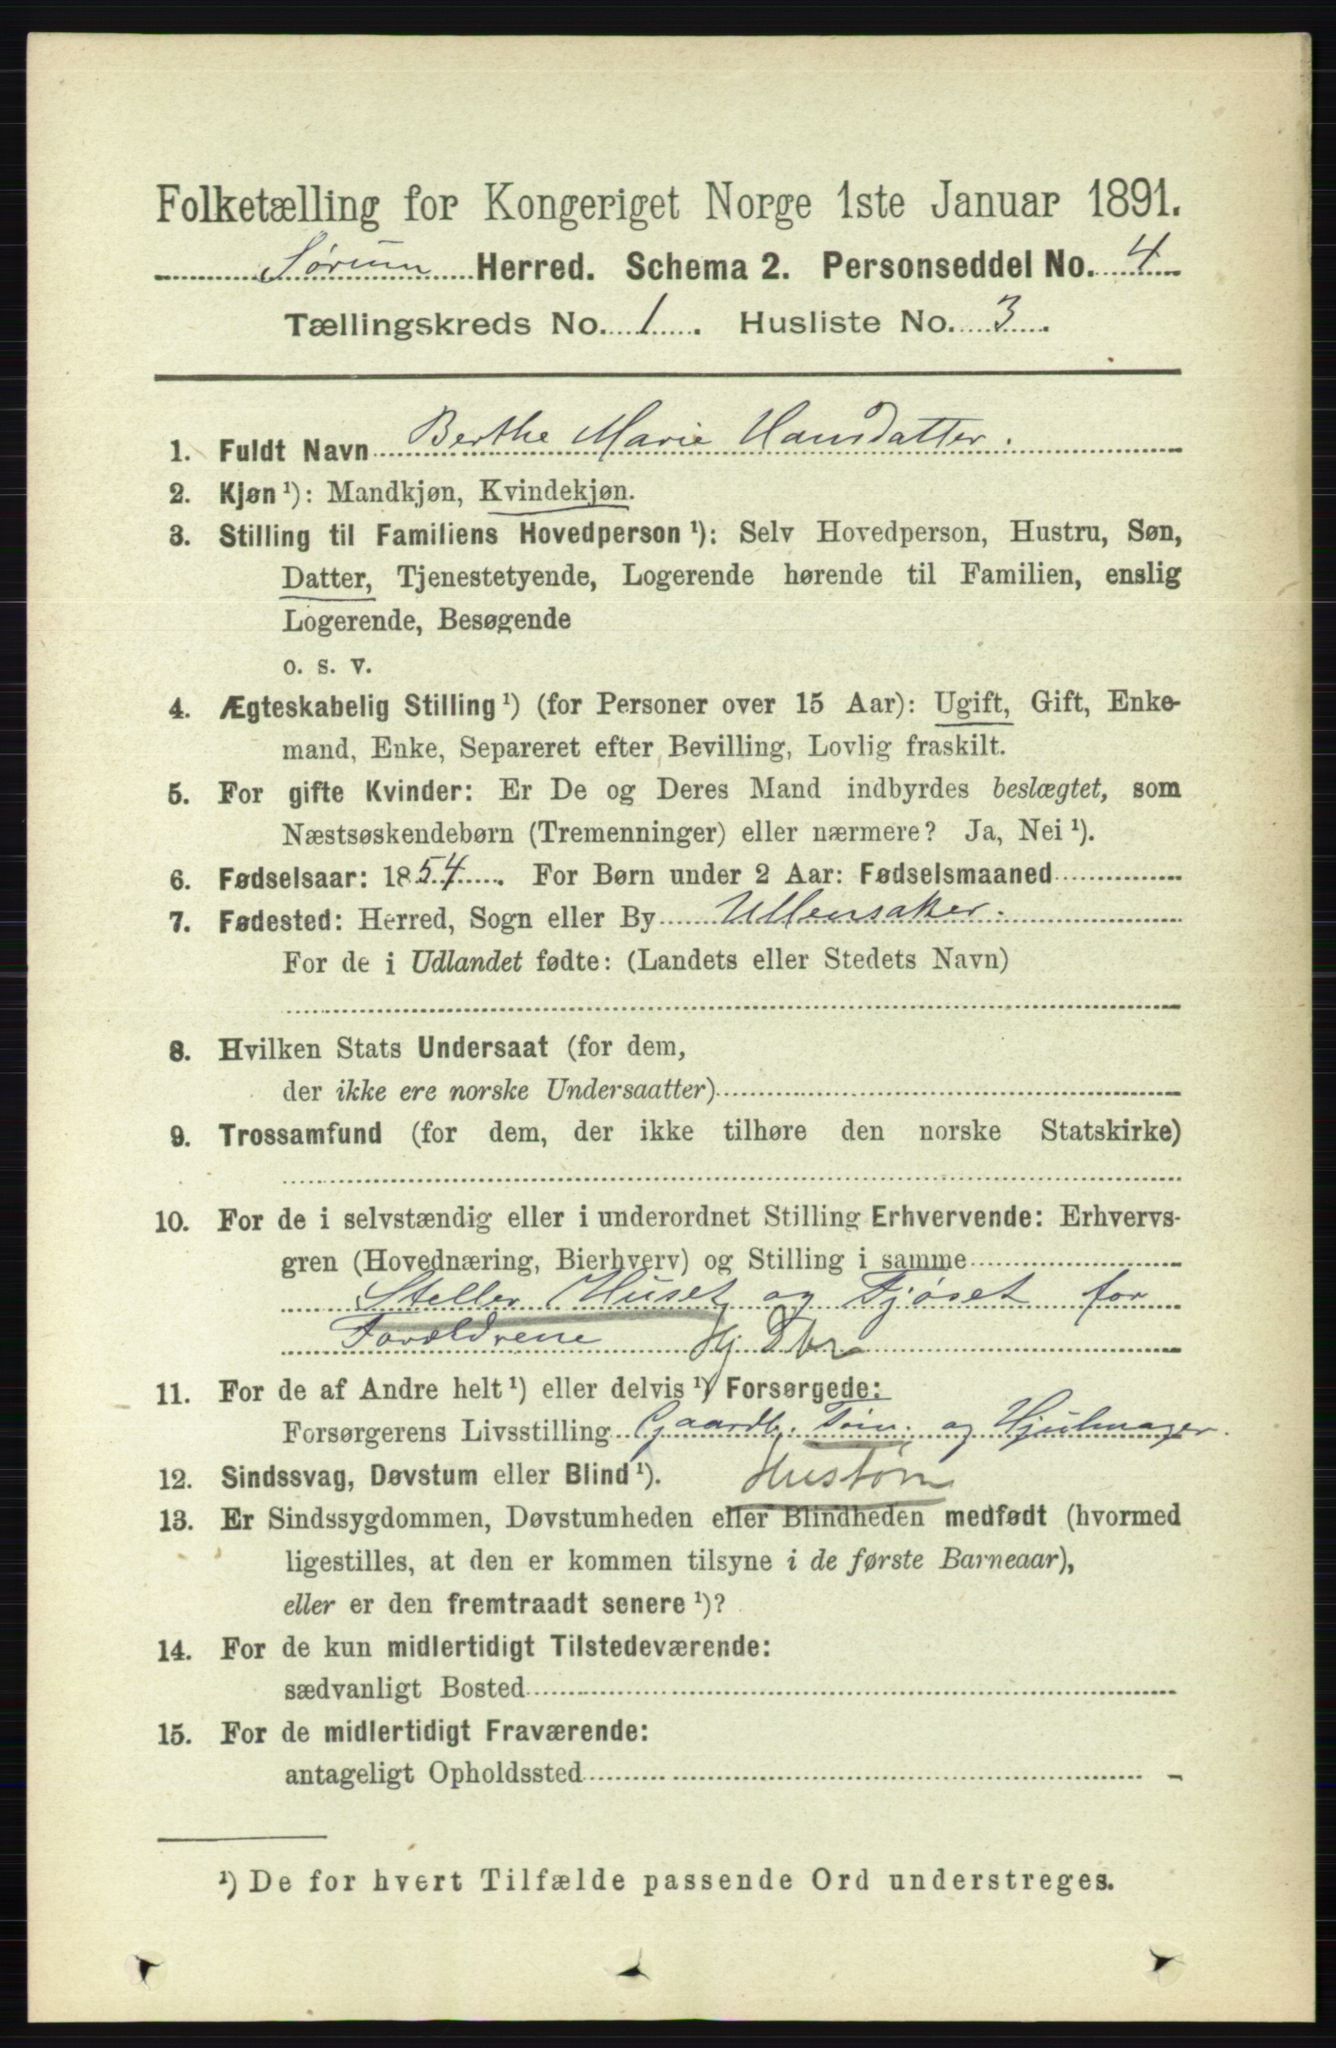 Folketælling for Kongeriget Norge 1ste Januar 1891.
Sørum Herred. Schema 2. Personseddel No. 4
Tællingskreds No. 1. Husliste No. 3.
1. Fuldt Navn Berthe Marie Hansdatter.
2. Kjøn ¹): Mandkjøn, Kvindekjøn.
3. Stilling til Familiens Hovedperson ¹): Selv Hovedperson, Hustru, Søn,
Datter, Tjenestetyende, Logerende hørende til Familien, enslig
Logerende, Besøgende
o. s. v.
4. Ægteskabelig Stilling ¹) (for Personer over 15 Aar): Ugift, Gift, Enke-
mand, Enke, Separeret efter Bevilling, Lovlig fraskilt.
5. For gifte Kvinder: Er De og Deres Mand indbyrdes beslægtet, som
Næstsøskendebørn (Tremenninger) eller nærmere? Ja, Nei ¹).
6. Fødselsaar: 1854. For Børn under 2 Aar: Fødselsmaaned
7. Fødested: Herred, Sogn eller By Ullensaker.
For de i Udlandet fødte: (Landets eller Stedets Navn)
8. Hvilken Stats Undersaat (for dem,
der ikke ere norske Undersaatter)
9. Trossamfund (for dem, der ikke tilhøre den norske Statskirke)
10. For de i selvstændig eller i underordnet Stilling Erhvervende: Erhvervs-
gren (Hovednæring, Bierhverv) og Stilling i samme
Steller Huset og Fjøset for
Forældrene Hj
11. For de af Andre helt ¹) eller delvis ¹) Forsørgede:
Forsørgerens Livsstilling Gaardb. Tøm. og Hjulmager.
12. Sindssvag, Døvstum eller Blind ¹).
13. Er Sindssygdommen, Døvstumheden eller Blindheden medfødt (hvormed
ligestilles, at den er kommen tilsyne i de første Barneaar),
eller er den fremtraadt senere ¹)?
14. For de kun midlertidigt Tilstedeværende:
sædvanligt Bosted
15. For de midlertidigt Fraværende:
antageligt Opholdssted
¹) De for hvert Tilfælde passende Ord understreges.